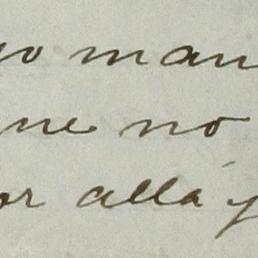 yo man
ne no
or allá y